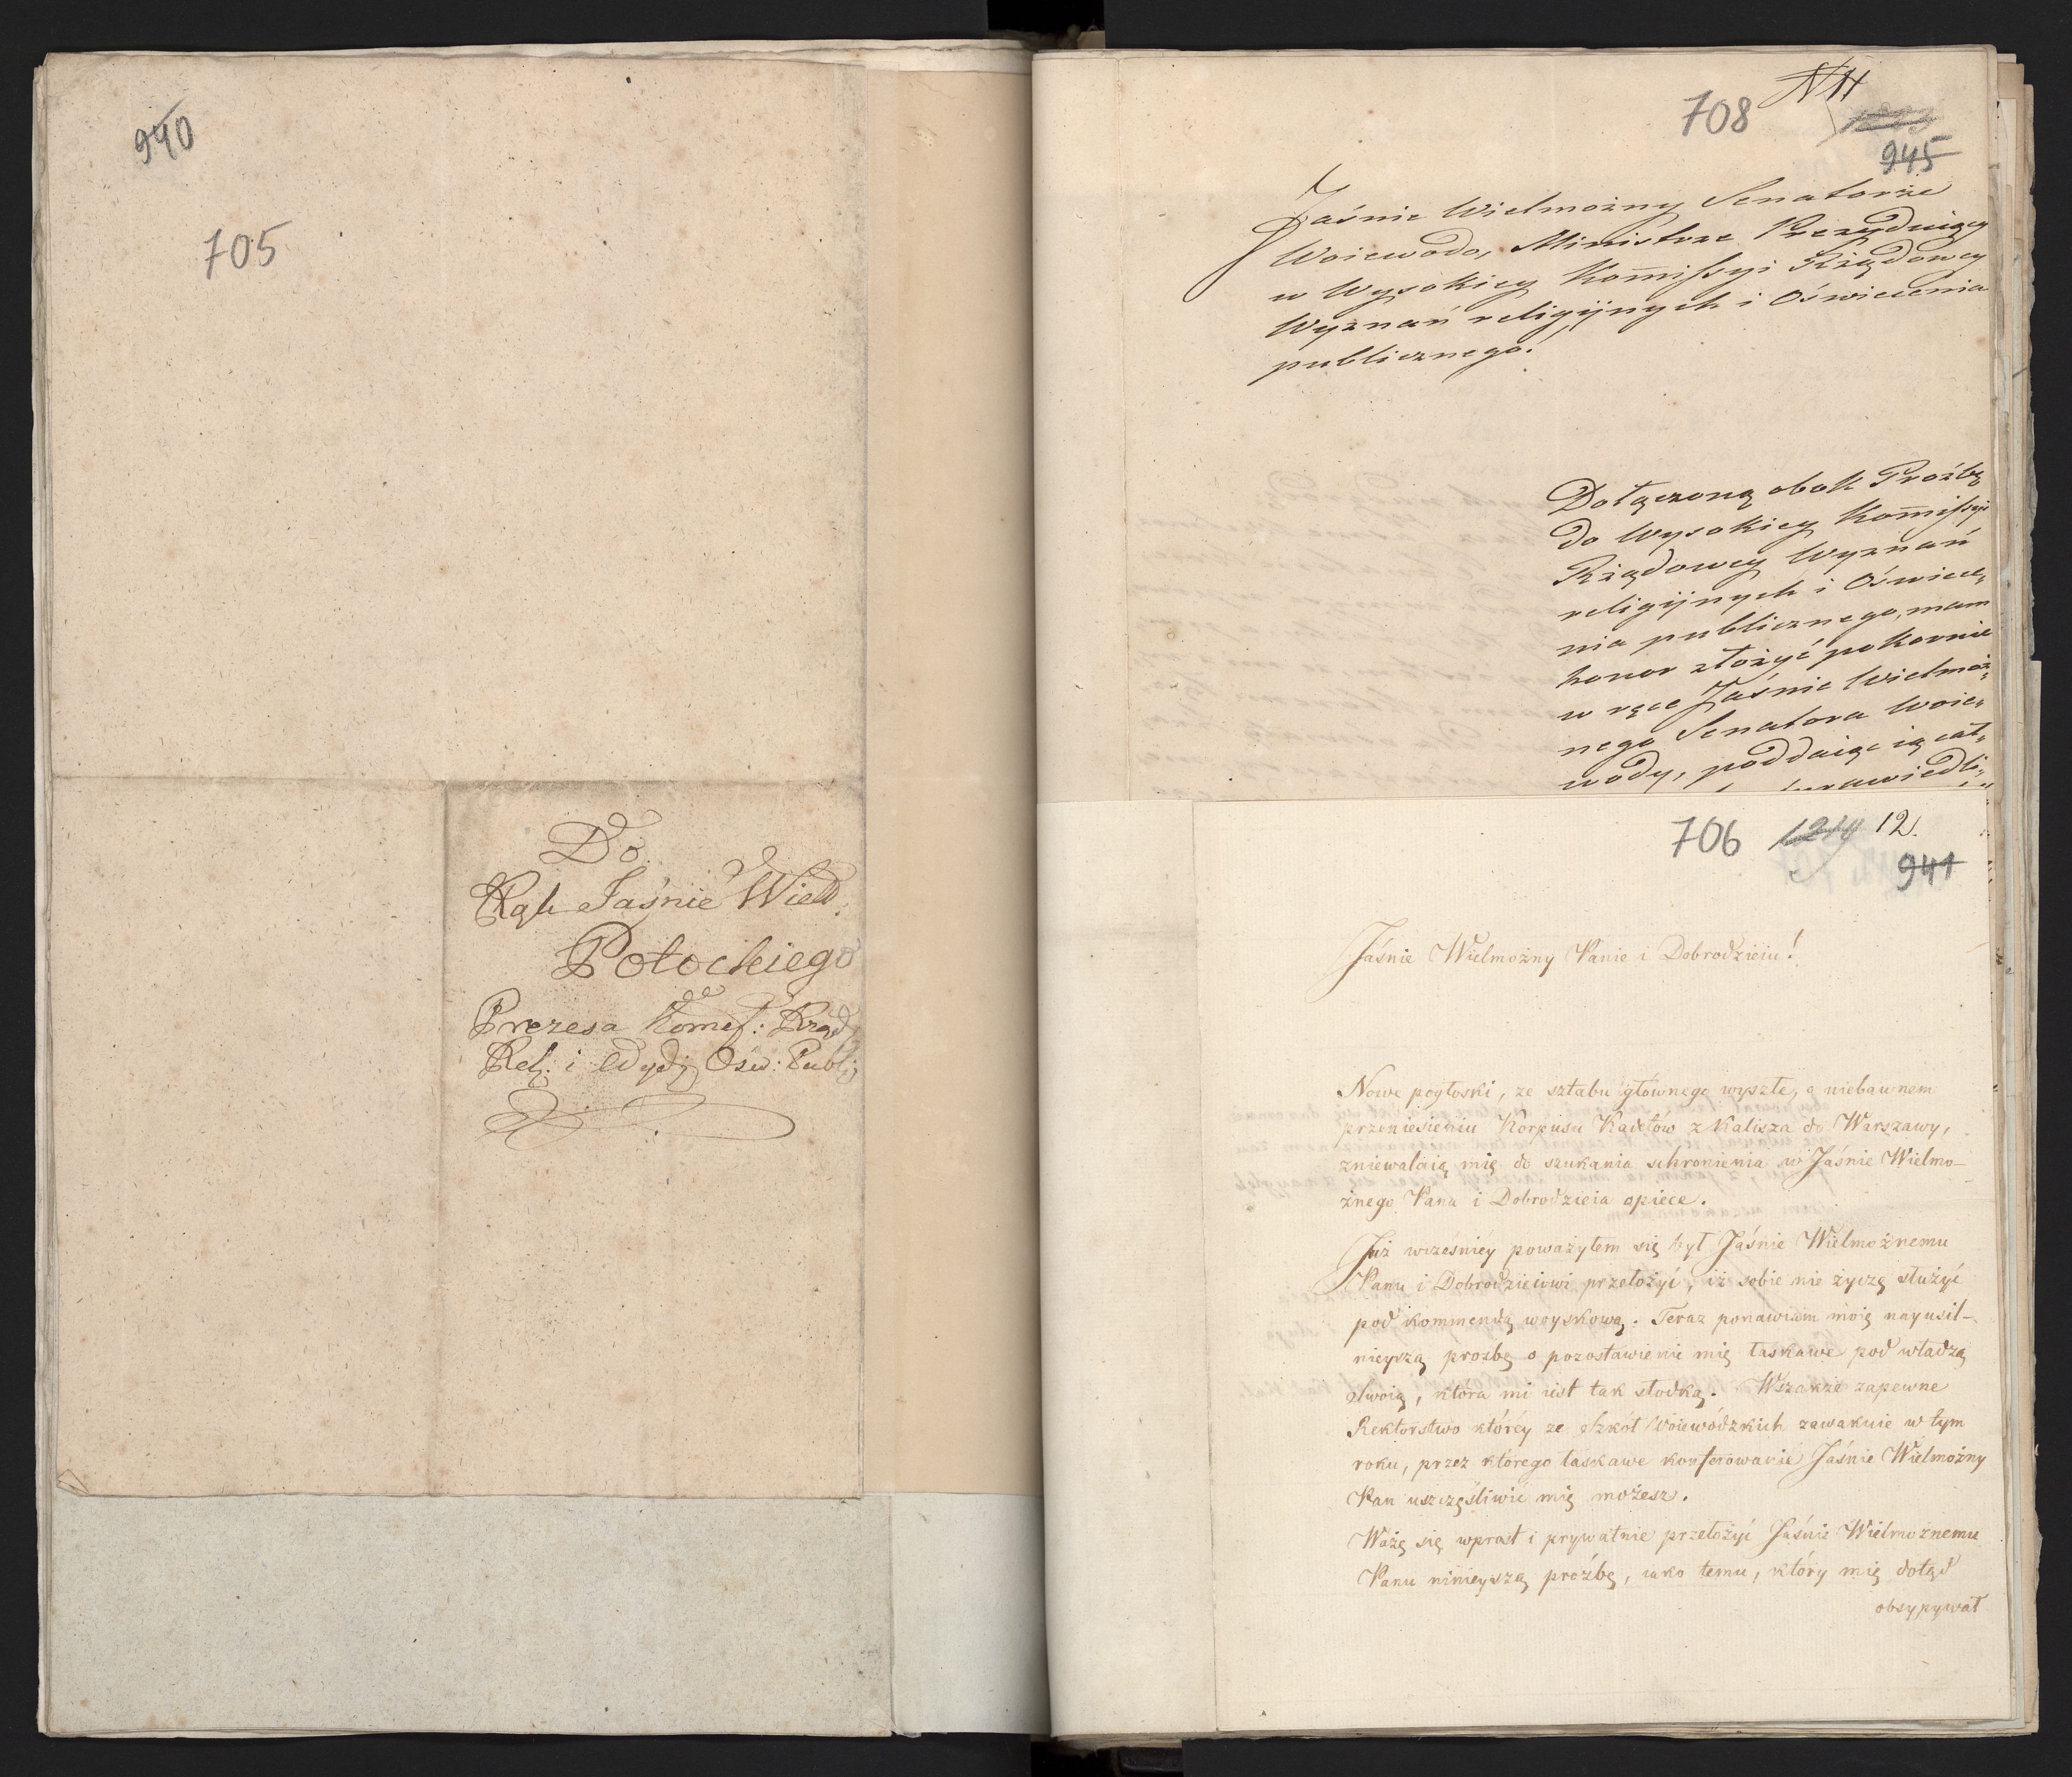 940
705
Do
Rąk Jaśnie Wiel.
Potockiego
Prezesa Komis: Rząd
Rel: i Wydz Ośw: Publ:
N 11
708
945
Jaśnie Wielmożny Senatorze
Woiewodo, Ministrze Prezyduiący
w Wysokiey Kom̄issyi Rządowey
Wyznań religijnych i Oświecenia
publicznego!
Dołączoną obok Proźbę
do Wysokiey Kom̄issyi
Rządowey Wyznań
religijnych i Oświece„
nia publicznego, mam
honor złożyć pokornie
w ręce Jaśnie Wielmoż„
nego Senatora Woie„
wody, poddaiąc ią cał„
sprawiedli„
706 1214 12.
941
Jaśnie Wielmożny Panie i Dobrodzieiu!
Nowe pogłoski, ze sztabu głównego wyszłe, o niebawnem
przeniesieniu Korpusu Kadetów z Kalisza do Warszawy,
zniewalaią mię do szukania schronienia w Jaśnie Wielmo-
żnego Pana i Dobrodzieia opiece.
Już wcześniey poważyłem się był Jaśnie Wielmożnemu
Panu i Dobrodzieiowi przełożyć, iż sobie nie życzę służyć
pod kommendą woyskową. Teraz ponawiam moię nayusil-
nieyszą prozbę o pozostawienie mię łaskawe pod władzą
Swoią, która mi iest tak słodką. Wszakże zapewne
Rektorstwo któréy ze Szkół Woiewódzkich zawakuie w tym
roku, przez którego łaskawe konferowanie Jaśnie Wielmożny
Pan uszczęśliwić mię możesz.
Ważę się wprost i prywatnie przełożyć Jaśnie Wielmożnemu
Panu ninieyszą prózbę, iako temu, który mię dotąd
obsypywał